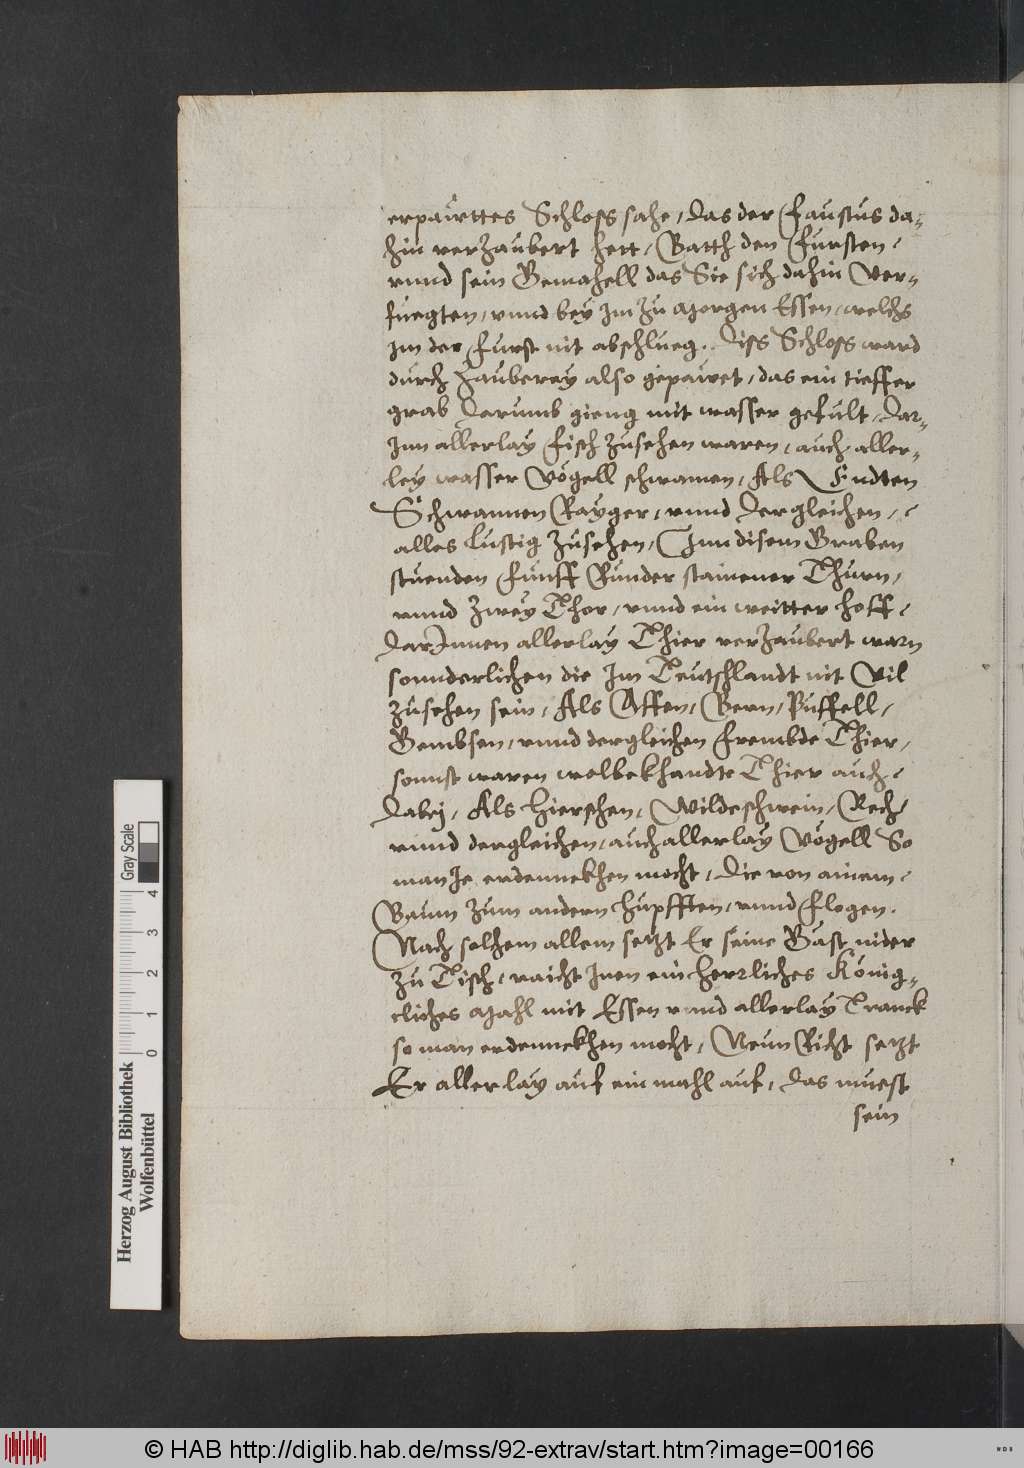 erpauwttes Schloss sahe, das der Faustus da-
hin verzaubert hett, Batth den Fursten,
vnnd sein Gemahell das Sie sich dahin ver-
fuegten, vnnd bey im zu Morgen Essen, welchs
im der Furst nit abschlueg. diss Schloss ward
durch Zauberey also gepawet, das ein tieffer
grab darumb gieng mit wasser gefült, dar-
Inn allerlay Fisch zusehen waren, auch aller-
ley wasser Vögell schwamen, Als Endten
Schwannen Rayger, vnnd dergleichen,
alles Lustig zusehen, Inn disem Graben
stuenden Funff Runder stainener Thurn,
vnnd zwey Thor, vnnd ein weitter hoff,
darInnen allerlay Thier verzaubert warn
sonnderlichen die Im Teutschlandt nit vil
zusehen sein, Als Affen, Bern, Püffell,
Gembsen, vnnd dergleichen frembde Thier,
sonnst waren wolbekhandte Thier auch,
dabej, Als Hierschen, Wildeschwein, Rech
vnnd dergleichen, auch allerlay Vögell So
man Je erdennckhen mocht, die von ainem,
Baum zum andern hupfften, vnnd flogen.
Nach solchem allem setzt Er seine Gäst nider
zu Tisch, raicht Inen ein herrliches König-
cliches Mahl mit Essen vnnd allerlay Tranck
so man erdennckhen mocht, Neun Richt setzt
Er allerlay auf ein mahl auf, das muest
sein
Gray Scale
4
3
2
1
0
Herzog August Bibliothek
Wolfenbüttel
© HAB http://diglib.hab.de/mss/92-extrav/start.htm?image=00166